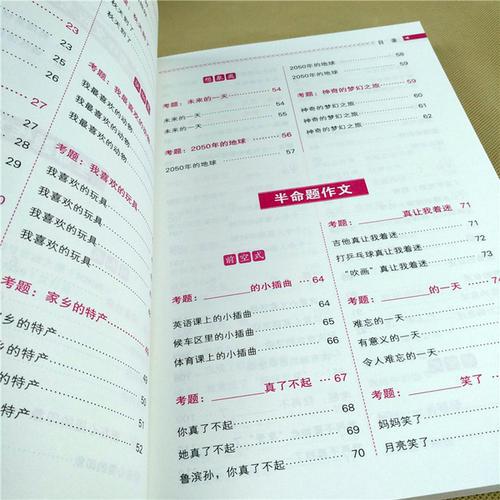 23
23
25
26
考题：我最喜欢的动物
27
我最喜欢的动物
我最喜欢的动物
29
考题：我喜欢的玩具
我喜欢的玩具
我喜欢的玩具
我喜欢的玩具
考题：家乡的特产
家乡的特产
乡的特产
特产
50
51
52
目录
想象篇
考题：未来的一天 54
未来的一天 54
未来的一天 55
考题：2050年的地球 56
2050年的地球 57
2050年的地球 58
2050年的地球 59
考题：神奇的梦幻之旅 59
神奇的梦幻之旅 60
神奇的梦幻之旅 61
神奇的梦幻之旅 62
半命题作文
前空式
考题：______的小插曲 64
英语课上的小插曲 64
候车区里的小插曲 65
体育课上的小插曲 66
考题：______真了不起 67
你真了不起 68
她真了不起 69
鲁滨孙，你真了不起 70
考题：______真让我着迷 71
吉他真让我着迷 71
打乒乓球真让我着迷 72
“吹画”真让我着迷 73
考题：______的一天 74
难忘的一天
有意义的一天
令人难忘的一天
考题：______笑了
妈妈笑了
月亮笑了